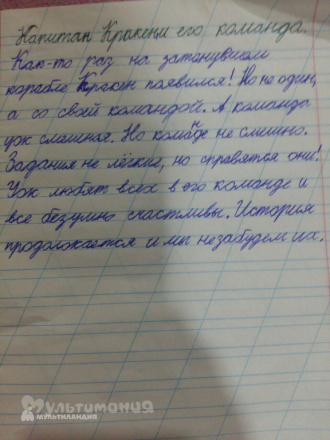 Капитан Кракен и его команда.
Как-то раз на затонувшем
корабле Кракен появился! Но не один,
а со своей командой. А команда
уж смешная. Но команде не смешно.
Задания не лёгкие, но справятся они!
Уж любят всех в его команде и
все безумно счастливы. История
продолжается и мы незабудем их.
Мультимания
МУЛЬТИЛАНДИЯ